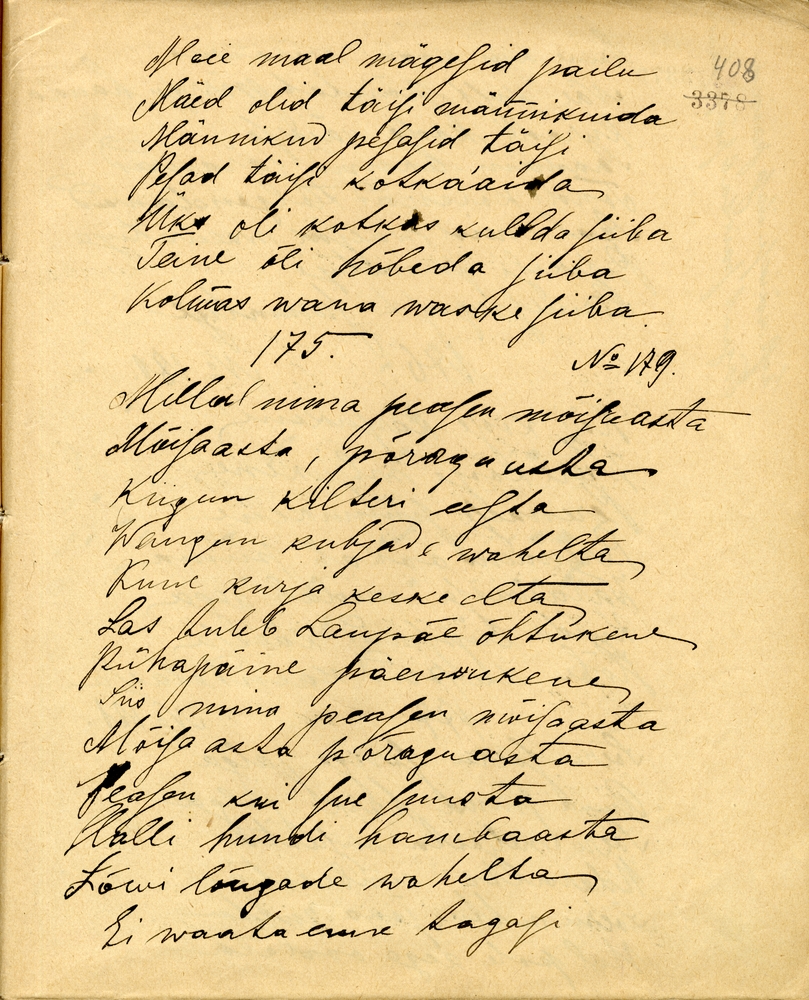 Meie maal mägesid pailu
408
Mäed olid täisi männikuida
3378
Männikud pesasid täisi
Pesad täisi kotkaaida
Üks oli kotkas kullda siiba
Teine õli hõbeda siiba
Kolmas wana waske siiba
175.
No 179.
Millal nima peasen mõisaasta
Mõisaasta, põraguusta
Kiigun kilteri eesta
Wangun kubjade wahelta
Kune kurja keske elta
Las tuleb Laupäe õhtukene
Pühapäine päewukene
Siis mina peasen mõisaasta
Mõisaasta põraguasta
Peasen kui sue suusta
Halli hundi hambaasta
Lõwi lõugade wahelta
Ei waata enne tagasi